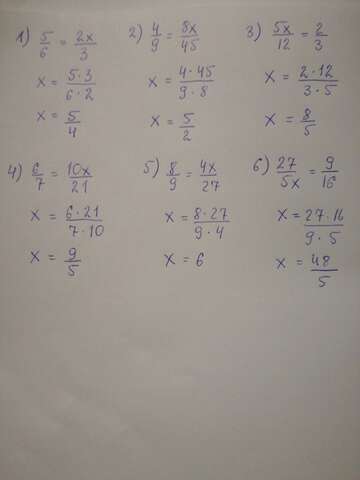 1) 5/6 = 2x/3
x = 5·3/6·2
x = 5/4
2) 4/9 = 8x/45
x = 4·45/9·8
x = 5/2
3) 5x/12 = 2/3
x = 2·12/3·5
x = 8/5
4) 6/7 = 10x/21
x = 6·21/7·10
x = 9/5
5) 8/9 = 4x/27
x = 8·27/9·4
x = 6
6) 27/5x = 9/16
x = 27·16/9·5
x = 48/5